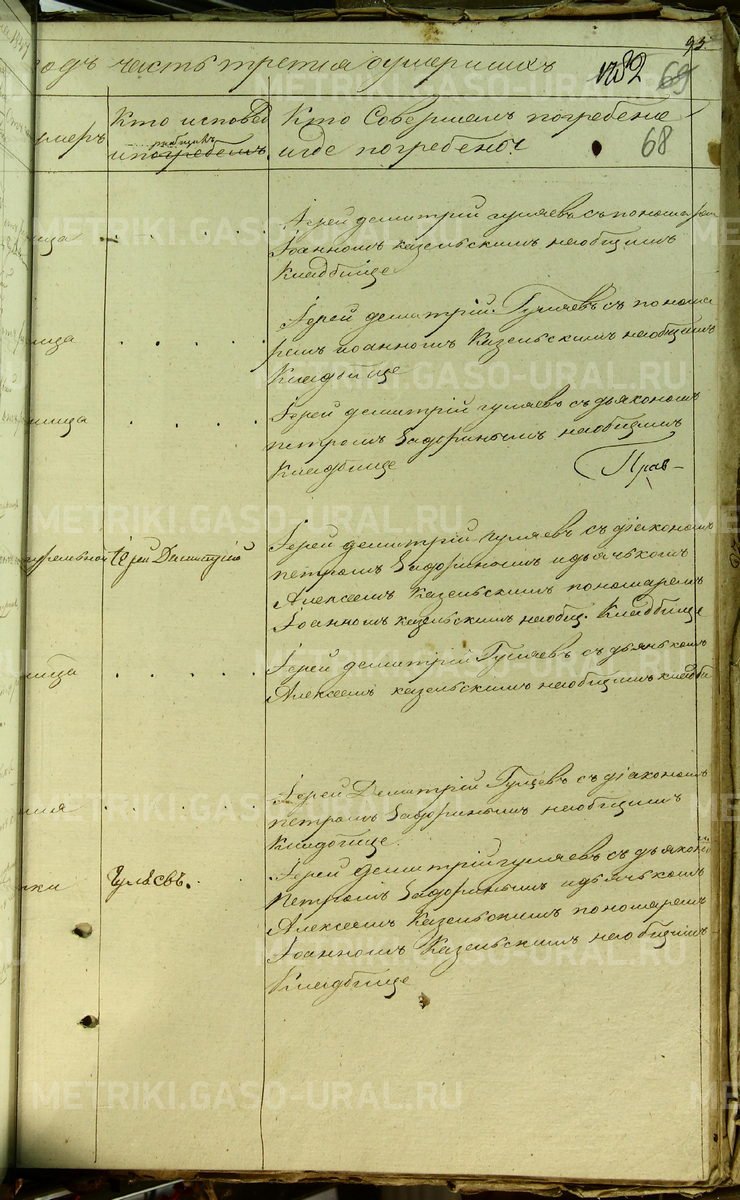 93
одъ часть третия оумершихъ 1782 65
68
мeръ
Кто исповед
приобщалъ
и погребалъ.
Кто Совершалъ погребение
и где погребены?
ица
Іерей димитрий гуляевъ съ понома
Іоанномъ казельскимъ на общемъ
Кладбище
ница
Іерей димитрий Гуляевъ съ понома
ремъ иоанномъ Казельскимъ на общемъ
Кладбище
ница
Іерей димитрий гуляевъ съ дьякономъ
петромъ Задоринымъ на общемъ
Кладбище
Прав-
Іерей Димитрий
Іерей димитрий гуляевъ съ діакономъ
петромъ Задоринымъ и дьячькомъ
Алексеемъ Казельскимъ пономаремъ
Іоанномъ казельскимъ на общ. Кладбище
ница
Іерей димитрий Гуляевъ съ дьячькомъ
Алексеемъ казельскимъ на общемъ кладби
Іерей Димитрій Гуляевъ съ діакономъ
петромъ Задоринымъ на общемъ
Кладбище.
Гуляевъ.
Іерей димитрий гуляевъ съ дьякономъ
Петромъ Задоринымъ и дьячькомъ
Алексеемъ Казельскимъ пономаремъ
Іоанномъ Казельскимъ на общемъ
Кладбище
METRIKI.GASO-URAL.RU